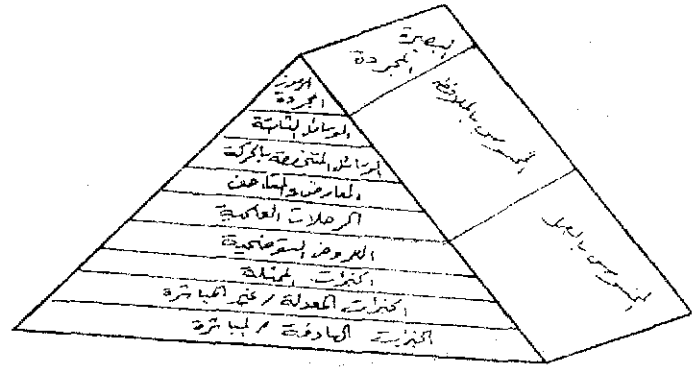 الرموز
المجردة
الوسائل الثابتة
الوسائل المتخصصة بالحركة
المعارض والمتاحف
الرحلات العلمية
العروض التوضيحية
الخبرات الممثلة
الخبرات المعدلة / غير المباشرة
الخبرات الهادفة / المباشرة
البصيرة
المجردة
المحسوس بالملاحظة
المحسوس بالعمل